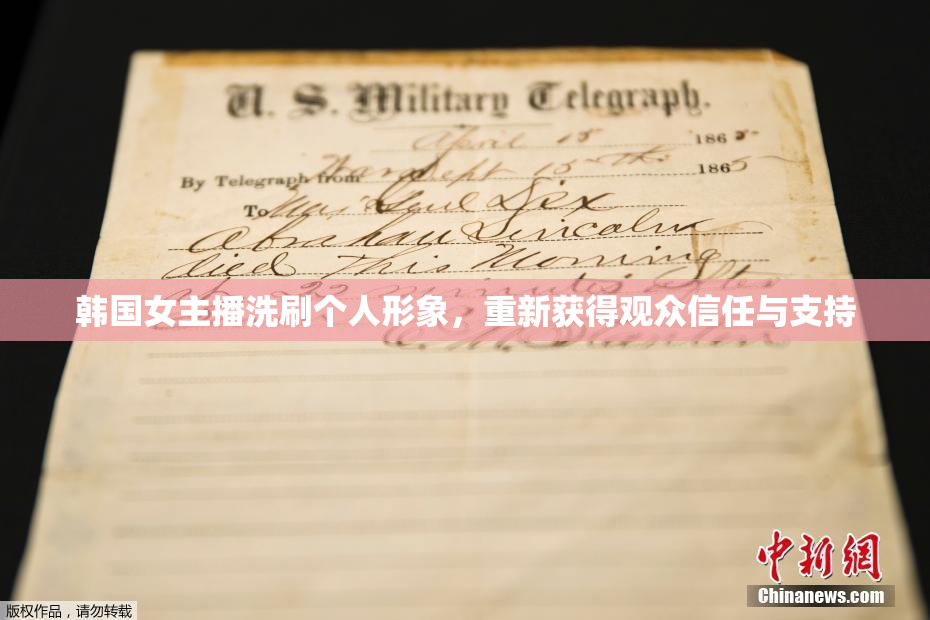 U. S. Military Telegraph.
April 15 1865
By Telegraph from War Dept 15th 1865
To Maj Genl Dix
Abraham Lincoln
died This Morning
22 minutes after
韩国女主播洗刷个人形象，重新获得观众信任与支持
E. M. Stanton
中新网
Chinanews.com
版权作品，请勿转载